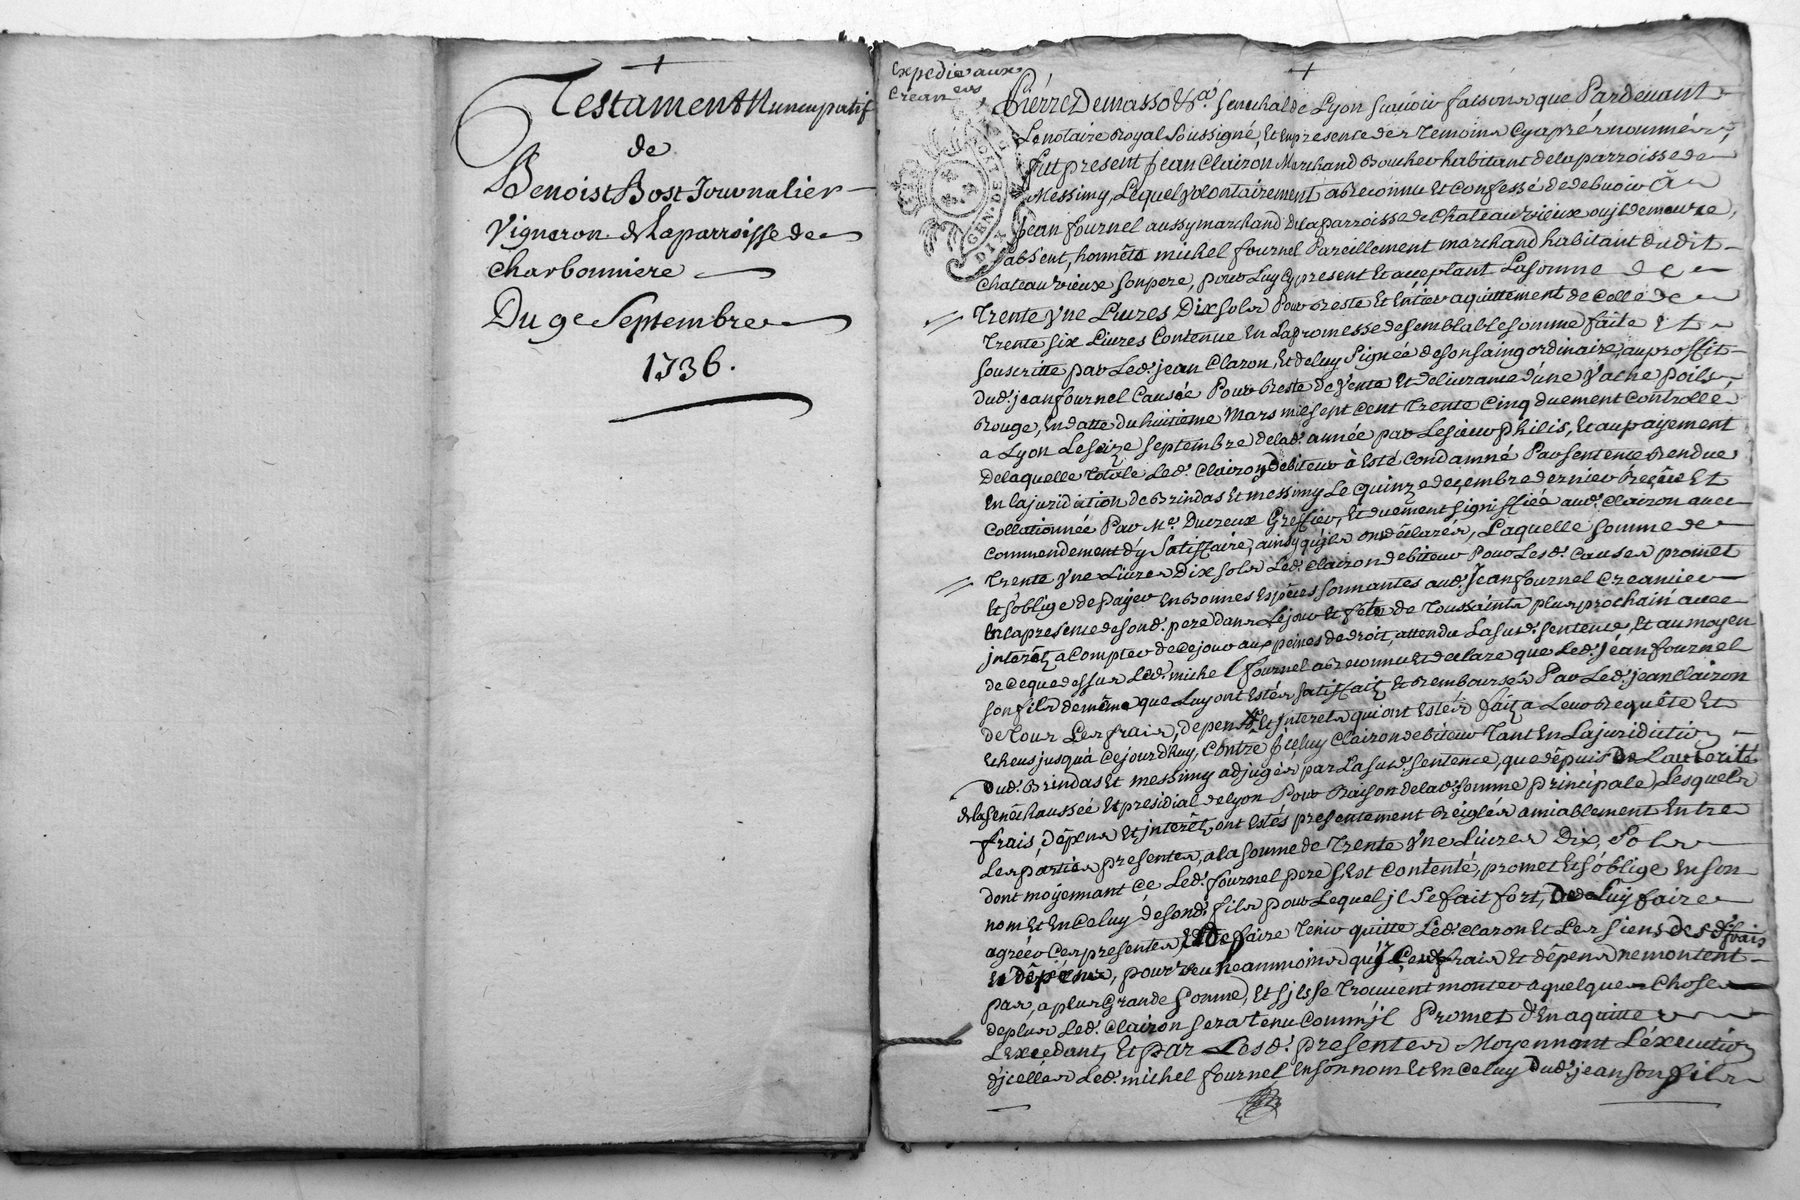 Testament Nuncupatif
de
Benoist Bost Journalier
Vigneron de la parroisse de
Charbonniere
Du 9e Septembre
1736.
expedié aux
crean.ers
GEN. DE
DIX
Pierre Demasso &a. Senechal de Lyon Scavoir faisons que Pardevant
Le notaire Royal Soussigné, Et en presence des Temoins cy aprés nommés,
fut present jean Clairon Marchand Boucher habitant de la parroisse de
Messimy, Lequel volontairement a reconnu Et Confessé de debvoir à
jean fournel aussy marchand de la parroisse de Chateauvieux ou jl demeure,
absent, honnête michel fournel Pareillement marchand habitant dudit
Chateauvieux son pere, pour Luy cy present Et acceptant La somme de
Trente Vne Livres Dix sols Pour Reste Et Entier aquittement de Celle de
Trente six Livres Contenue En La promesse de semblable somme faite Et
souscritte par Led. jean Claron, Et de luy Signée de son saing ordinaire, au proffit
dud. jean fournel Causée Pour Reste de Vente Et delivrance d'une Vache poils
Rouge, En datte du huitieme Mars mil sept Cent Trente Cinq duement Controllée
a Lyon Le seize septembre de lad. année par Le sieur Philis, Et au payement
De laquelle Totale Led. Clairon Debiteur à Esté Condamné Par sentence Rendue
En la juridiction de Brindas Et messimy Le quinze decembre dernier Reçeüe Et
Collationnée Par Me. Ducreux Greffier, Et duement signiffiée aud. Clairon avec
Commendement d'y Satisfaire, ainsy qu'jls ont déclarés, Laquelle somme de
Trente Vne Livres Dix sols Led. Clairon debiteur Pour Lesd. Causes promet
Et s'oblige de Payer En Bonnes Espèces sonnantes aud. Jean fournel Creancier
En la presence de sond. pere dans Le jour Et fête de Toussaints plus prochain avec
jnterêt a Compter de Ce jour aux peines de droit, attendu La susd. sentence, Et au moyen
de Ce que dessus Led. michel fournel a reconnu Et declare que Led. jean fournel
son fils de même que Luy ont Estés satisfaits Et Rembourses Par Led. jean Clairon
de Tous Les frais, depens Et jnterets qui ont Estés faits a Leur Requête Et
Echeus jusqu'à Cejourd'huy, Contre jceluy Clairon debiteur Tant En La juridiction
Dud. Brindas Et messimy adjugés par La susd. sentence, que depuis De L'autorité
de la senechaussée Et presidial de Lyon Pour Raison de lad. somme principale, Lesquels
frais, dépens Et jnterêts, ont Estés presentement Réiglés amiablement Entre
Les parties presentes, a la somme de Trente Vne Livres Dix Sols
dont moyennant Ce Led. fournel pere s'Est Contenté, promet Et s'oblige En son
nom Et En Celuy de sond. fils pour Lequel jl Se fait fort, De Luy faire
agréer Ces presentes, Et De faire Tenir quitte Led. Claron Et Les siens des d. frais
Et dépens, pourveu neammoins qu'y Ceux frais Et dépens ne montent
pas, a plus Grande somme, Et s'jls se Trouvent monter a quelque Chose
de plus Led. Clairon sera tenu Comm'jl Promet d'En aquitter
L'excedant, Et Par Lesd. presentes Moyennant L'éxecution
d'jcelles Led. michel fournel En son nom Et En Celuy Dud. jean son fils